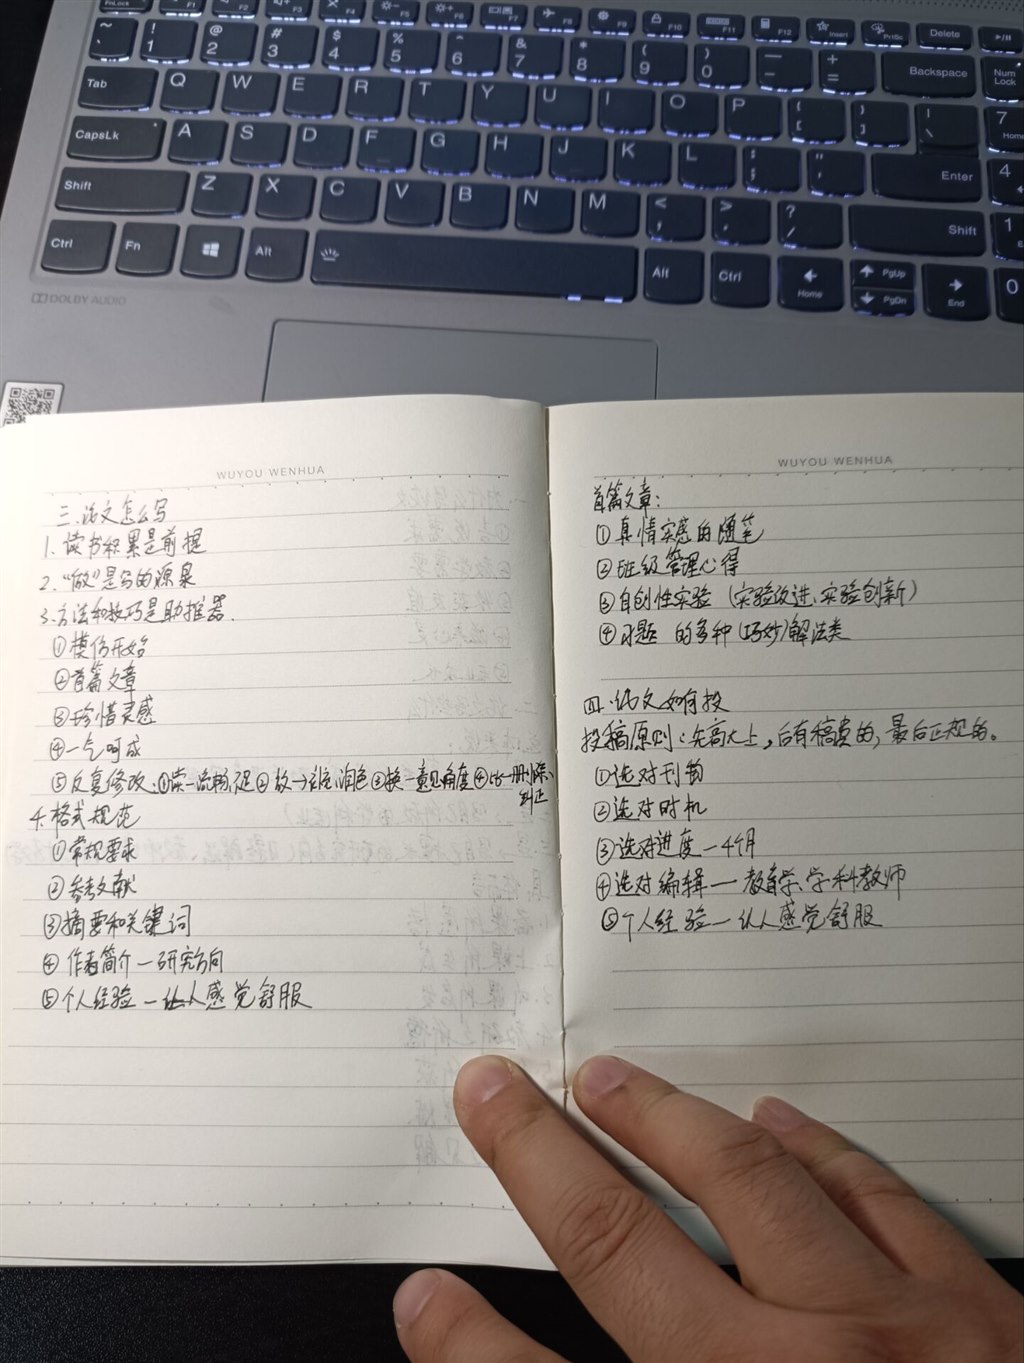 FnLock F1 F2 F3 F4 F5 F6 F7 F8 F9 F10 F11 F12 Insert PrtSc Delete
~ ` ! 1 @ 2 # 3 $ 4 % 5 ^ 6 & 7 * 8 ( 9 ) 0 — - + = Backspace Num Lock
Tab Q W E R T Y U I O P { [ } ] | \ 7 Home
CapsLk A S D F G H J K L : ; " ' Enter 4
Shift Z X C V B N M < , > . ? / Shift 1
Ctrl Fn Alt Alt Ctrl Home PgUp PgDn End 0
DOLBY AUDIO
WUYOU WENHUA
三.论文怎么写
1.读书积累是前提
2."做"是写的源泉
3.方法和技巧是助推器.
①模仿开始
②首篇文章
③珍惜灵感
④一气呵成
⑤反复修改.①读一流畅 ②放 润色③换一意见角度④ 删除、
纠正
4.格式规范
①常规要求
②参考文献
③摘要和关键词
④作者简介—研究方向
⑤个人经验—让人感觉舒服
WUYOU WENHUA
首篇文章:
①真情实感的随笔
②班级管理心得
③自创性实验(实验改进、实验创新)
④习题 的多种(巧妙)解法类
四.论文如何投
投稿原则:先高大上,后有稿费的,最后正规的。
①选对刊物
②选对时机
③选对进度—4个月
④选对编辑—教育学、学科教师
⑤个人经验—让人感觉舒服